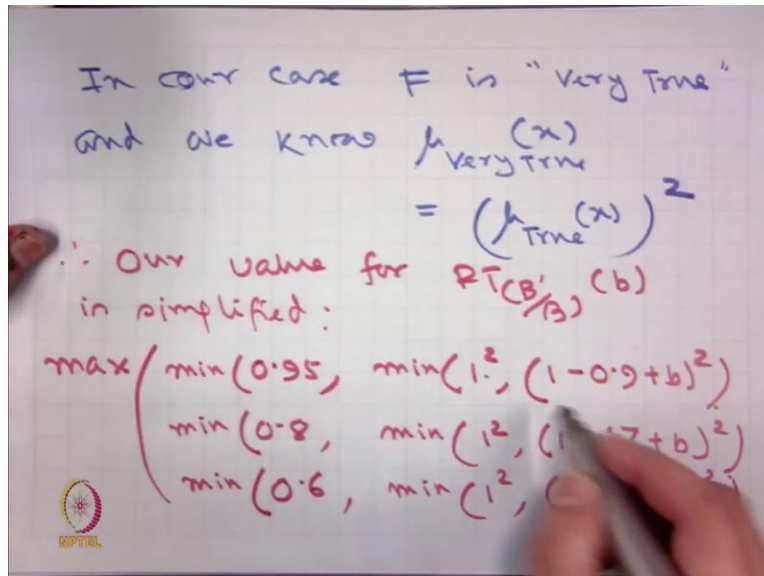 In our case F is "Very True"
and we know μ Very True (x)
= (μ True (x))²
∴ Our value for RT(B'/B) (b)
is simplified:
max ( min (0.95, min (1², (1-0.9+b)²)
min (0.8, min (1², (1 7+b)²)
min (0.6, min (1², (
NPTEL